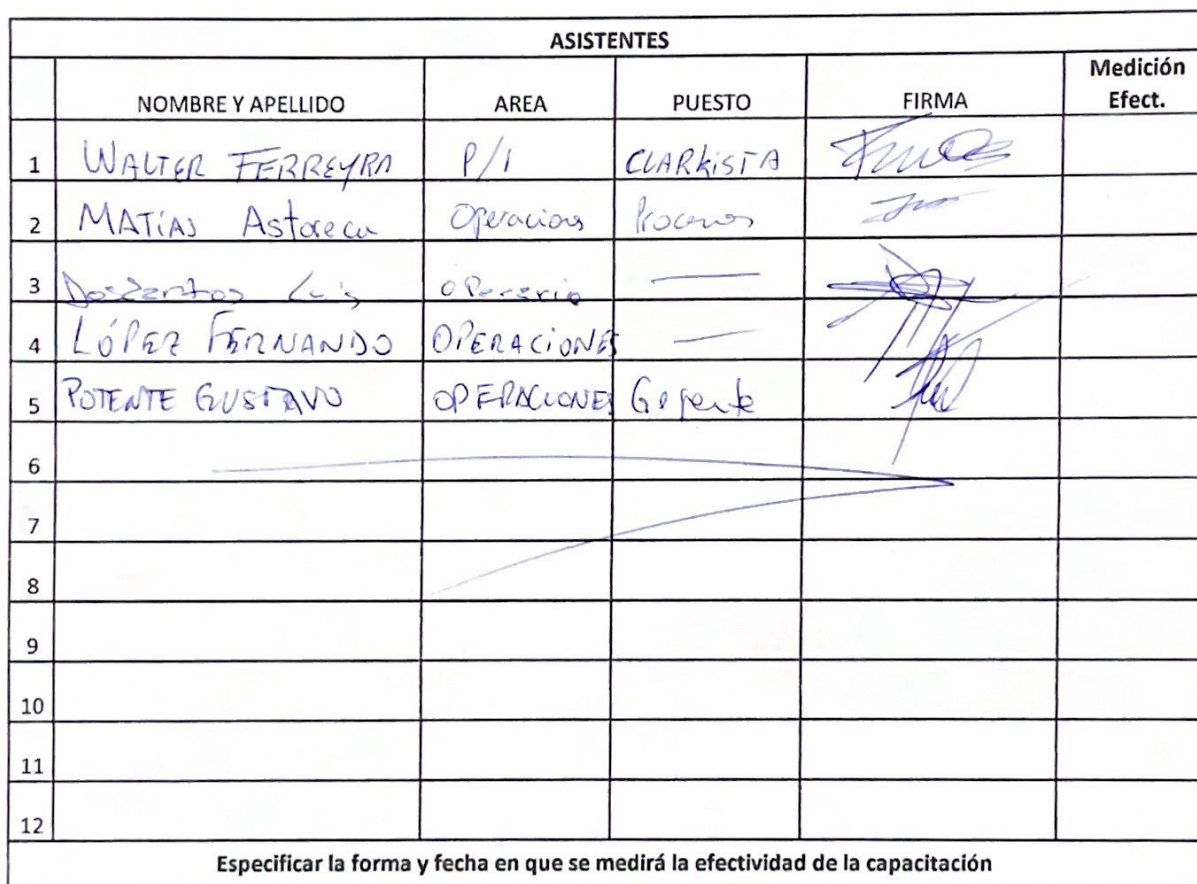 ASISTENTES
NOMBRE Y APELLIDO AREA PUESTO FIRMA Medición Efect.
1 WALTER FERREYRA P/1 CLARKISTA
2 MATÍAS Operaciones Procesos
3 Luis operario —
4 LÓPEZ FERNANDO OPERACIONES —
5 POTENTE GUSTAVO OPERACIONES Gerente
6
7
8
9
10
11
12
Especificar la forma y fecha en que se medirá la efectividad de la capacitación